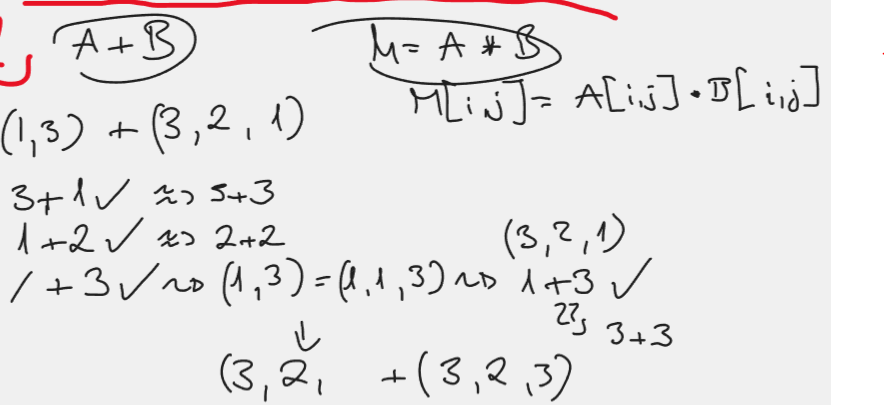 A+B M = A * B
M[i,j] = A[i,j] · B[i,j]
(1,3) + (3,2,1)
3+1 ✓ ⇝ 3+3
1+2 ✓ ⇝ 2+2
/ + 3 ✓ ⇝ (1,3) = (1,1,3) ⇝ 1+3 ✓
(3,2,1)
3+3
↓
(3,2, + (3,2,3)